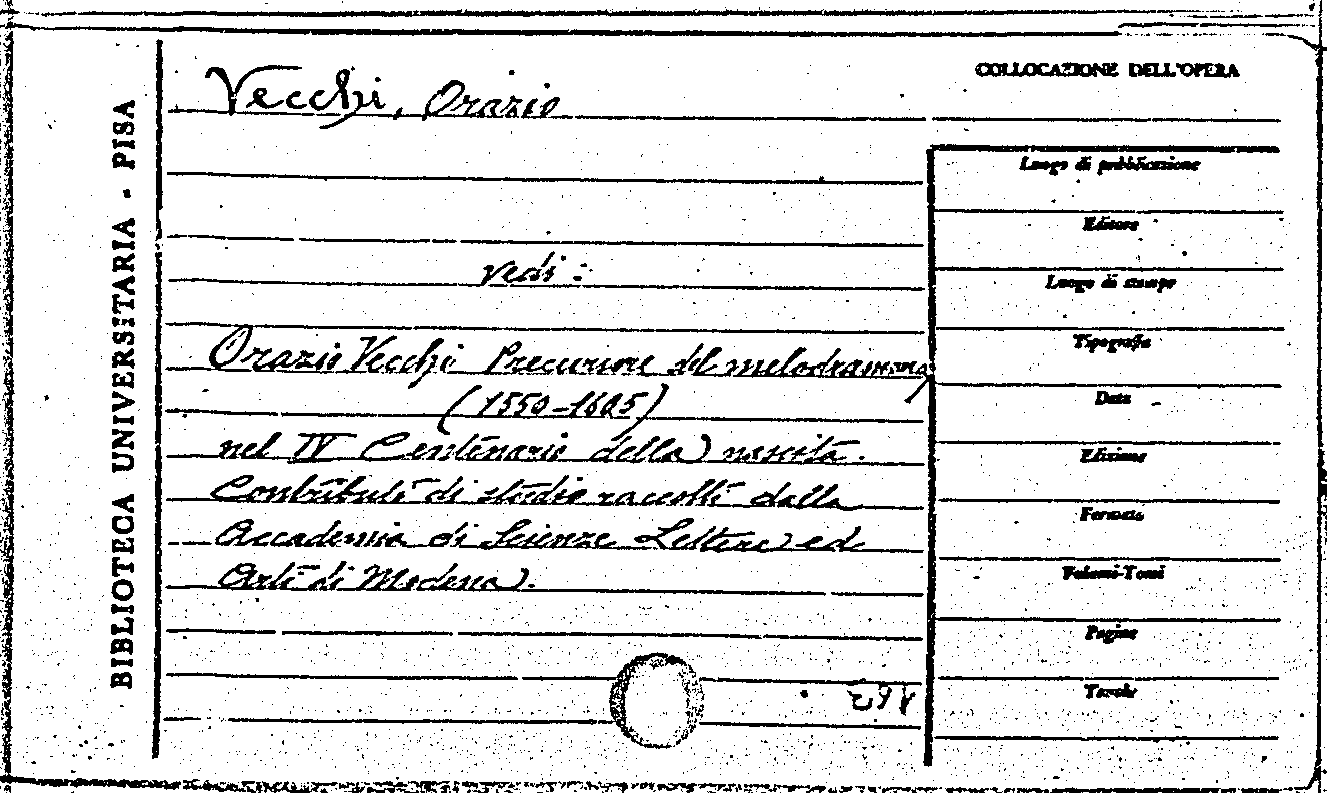 BIBLIOTECA UNIVERSITARIA - PISA
Vecchi, Orazio
vedi:
Orazio Vecchi Precursore del melodramma,
(1550-1605)
nel IV Centenario della nascita.
Contributi di studio raccolti dalla
Accademia di Scienze Lettere ed
Arti di Modena.
COLLOCAZIONE DELL'OPERA
Luogo di pubblicazione
Editore
Luogo di stampa
Tipografia
Data
Edizione
Formato
Volumi-Tomi
Pagine
Tavole